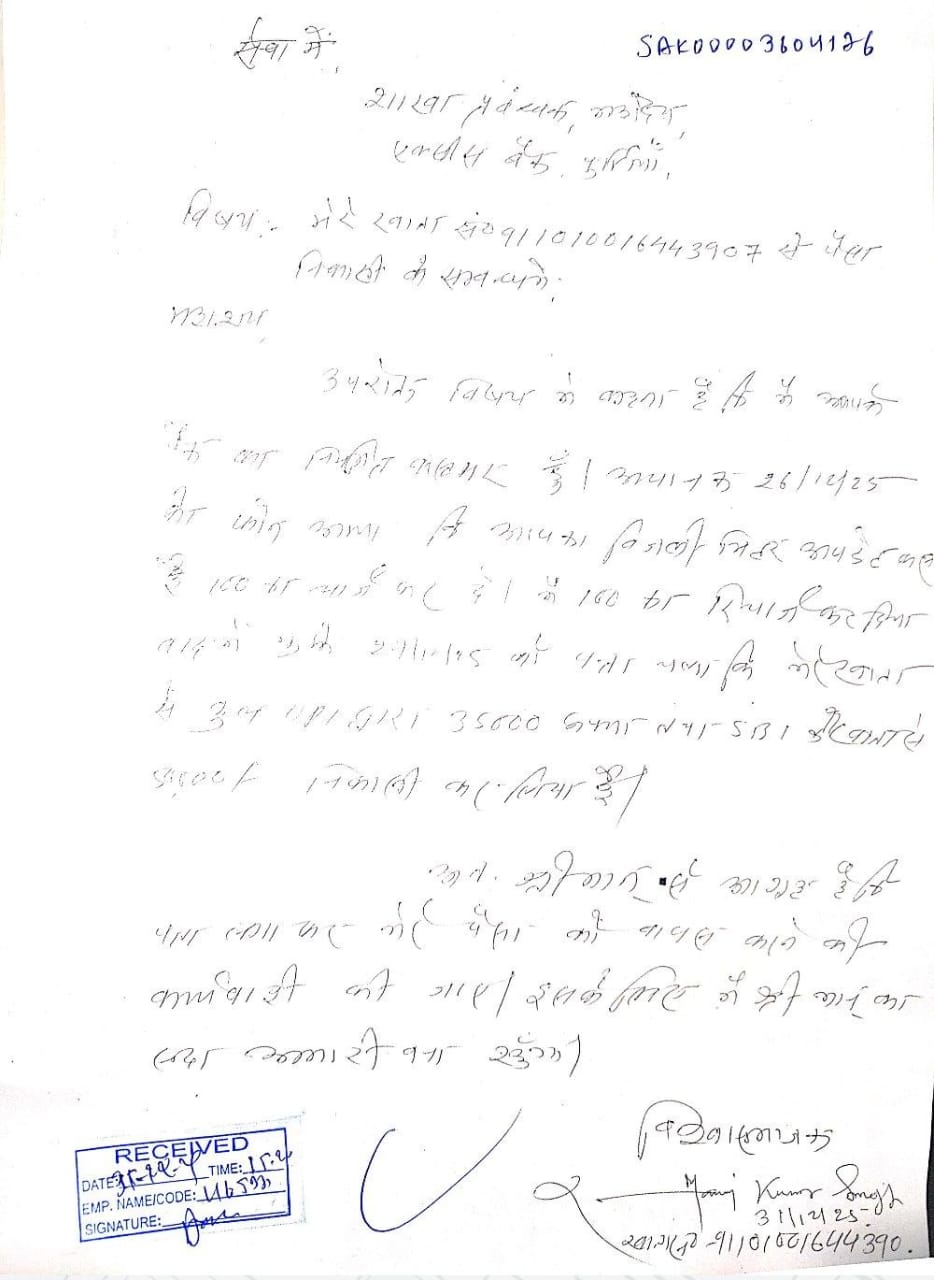 सेवा में,
SAK00003604126
शाखा प्रबन्धक, महोदय,
एक्सीस बैंक, पुर्णियाँ,
विषय:- मेरे खाता सं० 911010016443907 से पैसा
निकासी के सम्बन्ध में,
महाशय,
उपरोक्त विषय में कहना है कि मैं आपके
बैंक का नियमित कस्टमर हूँ। अचानक 26/12/25
को फोन आया कि आपका बिजली मिटर अपडेट करना
है 100 रु० चार्ज कर दें। मैं 100 रु० रिचार्ज कर दिया
बाद में मुझे को पता चला कि मेरे खाता
से कुल द्वारा 35000 रुपया तथा SBI के खाता से
निकासी कर लिया है।
अतः श्रीमान् से आग्रह है कि
पता लगा कर मेरे पैसा को वापस करने की
कार्यवाही की जाए। इसके लिए मैं श्रीमान् का
सदा आभारी बना रहूँगा।
विश्वासभाजक
Manoj Kumar Singh
31/12/25
खाता सं० - 91101001644390.
RECEIVED
DATE: TIME:
EMP. NAME/CODE:
SIGNATURE: